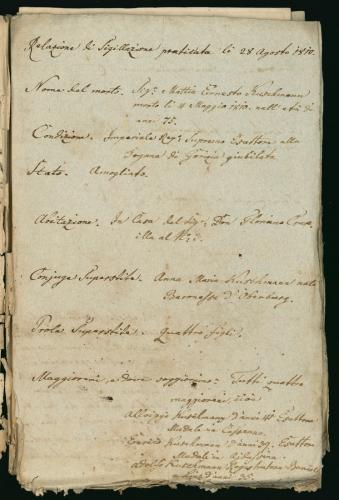 Relazione di Sigillazione praticata li 28 Agosto 1810.
Nome del morto. Sigr. Mattia Ernesto Kuschmann
morto li 4 Maggio 1810. nell'età di
anni 75.
Condizione. Imperiale Reg. Supremo Esattore alla
Dogana di Gorizia giubilato
Stato. Amogliato.
Abitazione. In Casa del Sigr. Don Floriano
illa al Nr. 3.
Conjuge Superstite. Anna Maria Kuschmann nata
Baronessa d'
Prole Superstite. Quattro figli.
Maggiorenni, e dove soggiornino. Tutti quattro
maggiorenni, cioè
Alloigio Kuschmann d'anni Esattore
Mudale in
Enrico Kuschmann d'anni 39. Esattore
Mudale in
Adolfo Kuschmann
d'anni 35.